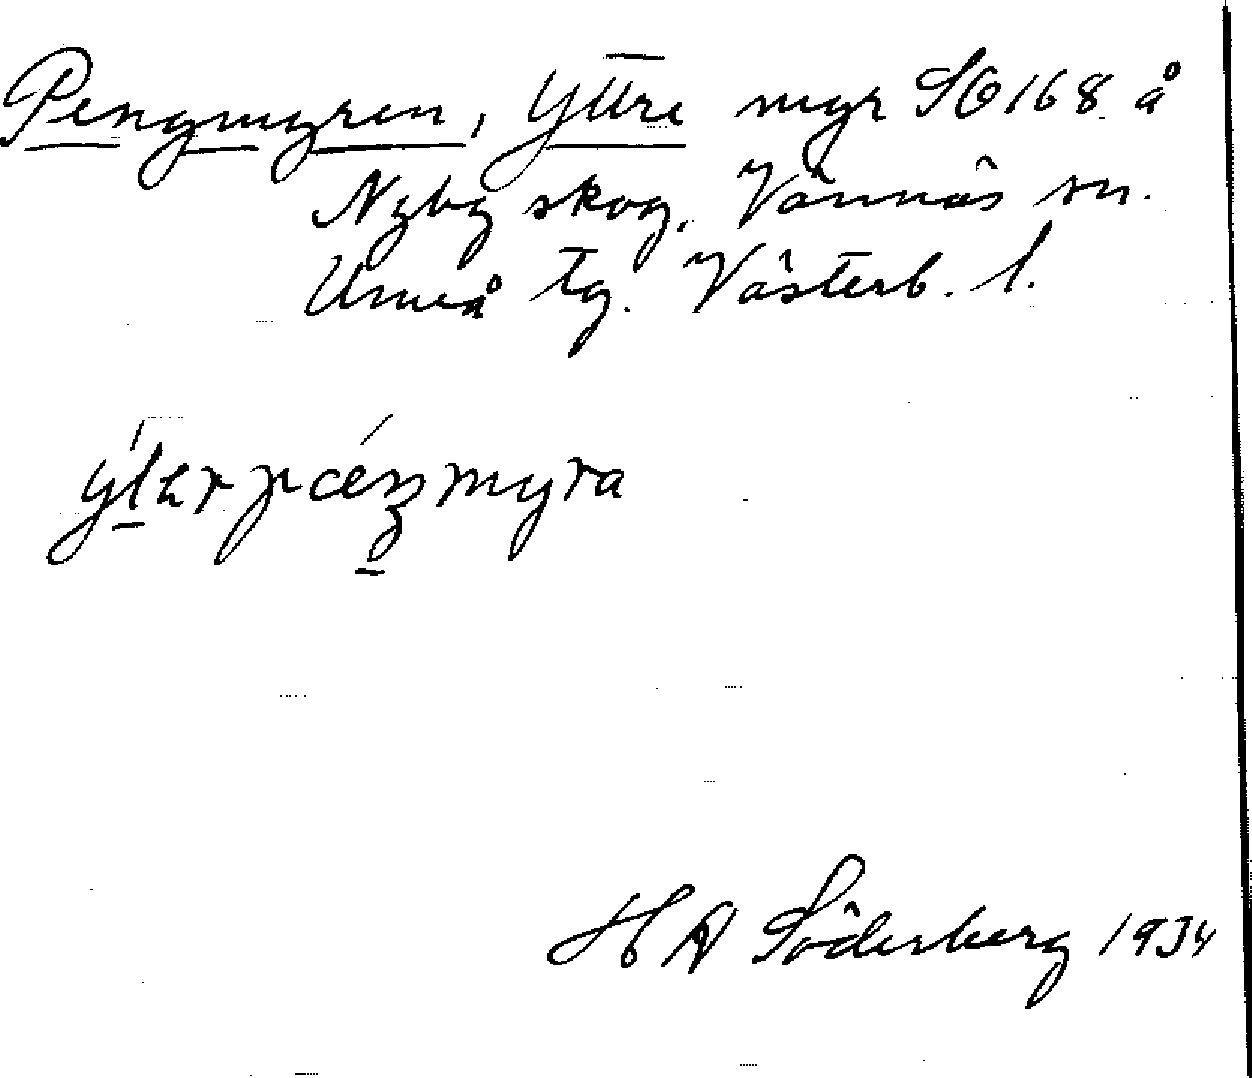 Pengmyren, Yttre myr SO 168 å
Nyby skog, Vännäs sn.
Umeå tg. Västerb. l.
H A Söderberg 1934